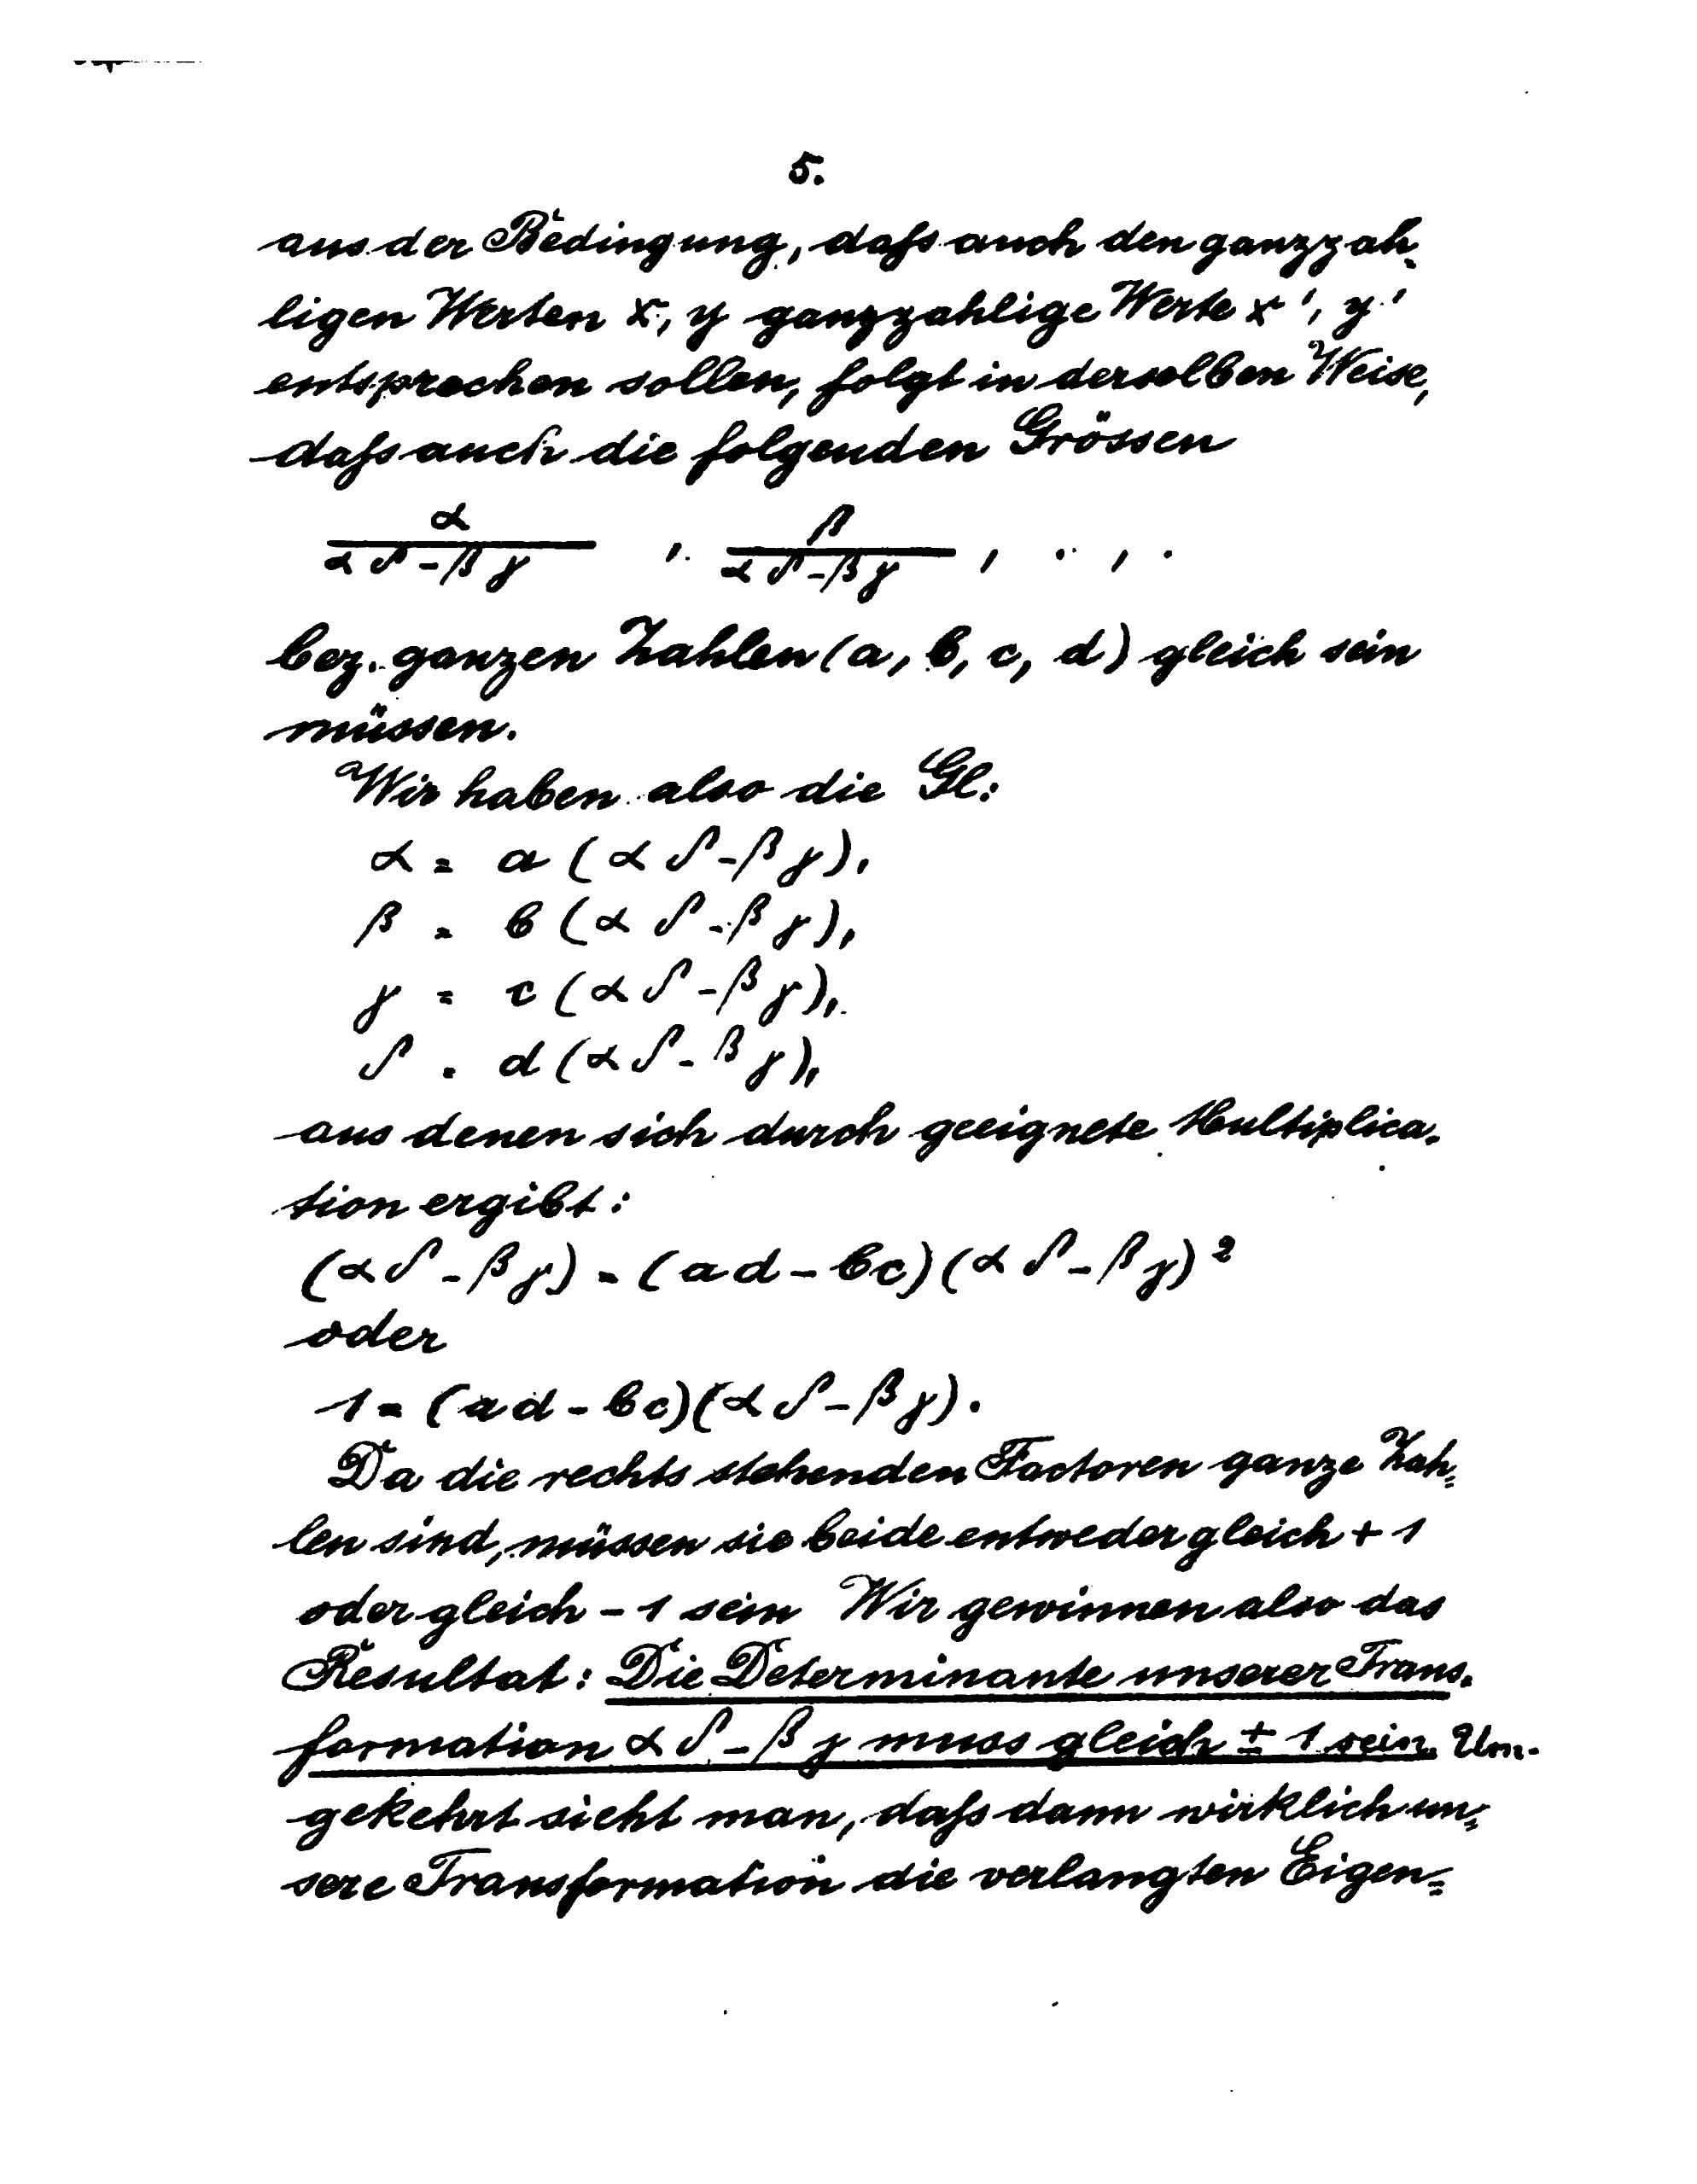 5.
aus der Bedingung, daſs auch den ganzzah-
ligen Werten x, y ganzzahlige Werte x', y'
entsprechen sollen, folgt in derselben Weise,
daſs auch die folgenden Grössen
α/(αδ-βγ), β/(αδ-βγ), ·, ·
bez. ganzen Zahlen (a, b, c, d) gleich sein
müssen.
Wir haben also die Gl:
α = a (αδ-βγ),
β = b (αδ-βγ),
γ = c (αδ-βγ),
δ = d (αδ-βγ),
aus denen sich durch geeignete Multiplica-
tion ergibt:
(αδ-βγ) = (ad-bc)(αδ-βγ)²
oder
1 = (ad-bc)(αδ-βγ).
Da die rechts stehenden Factoren ganze Zah-
len sind, müssen sie beide entweder gleich +1
oder gleich -1 sein Wir gewinnen also das
Resultat: Die Determinante unserer Trans-
formation αδ-βγ muss gleich ±1 sein. Um-
gekehrt sieht man, daſs dann wirklich un-
sere Transformation die verlangten Eigen-